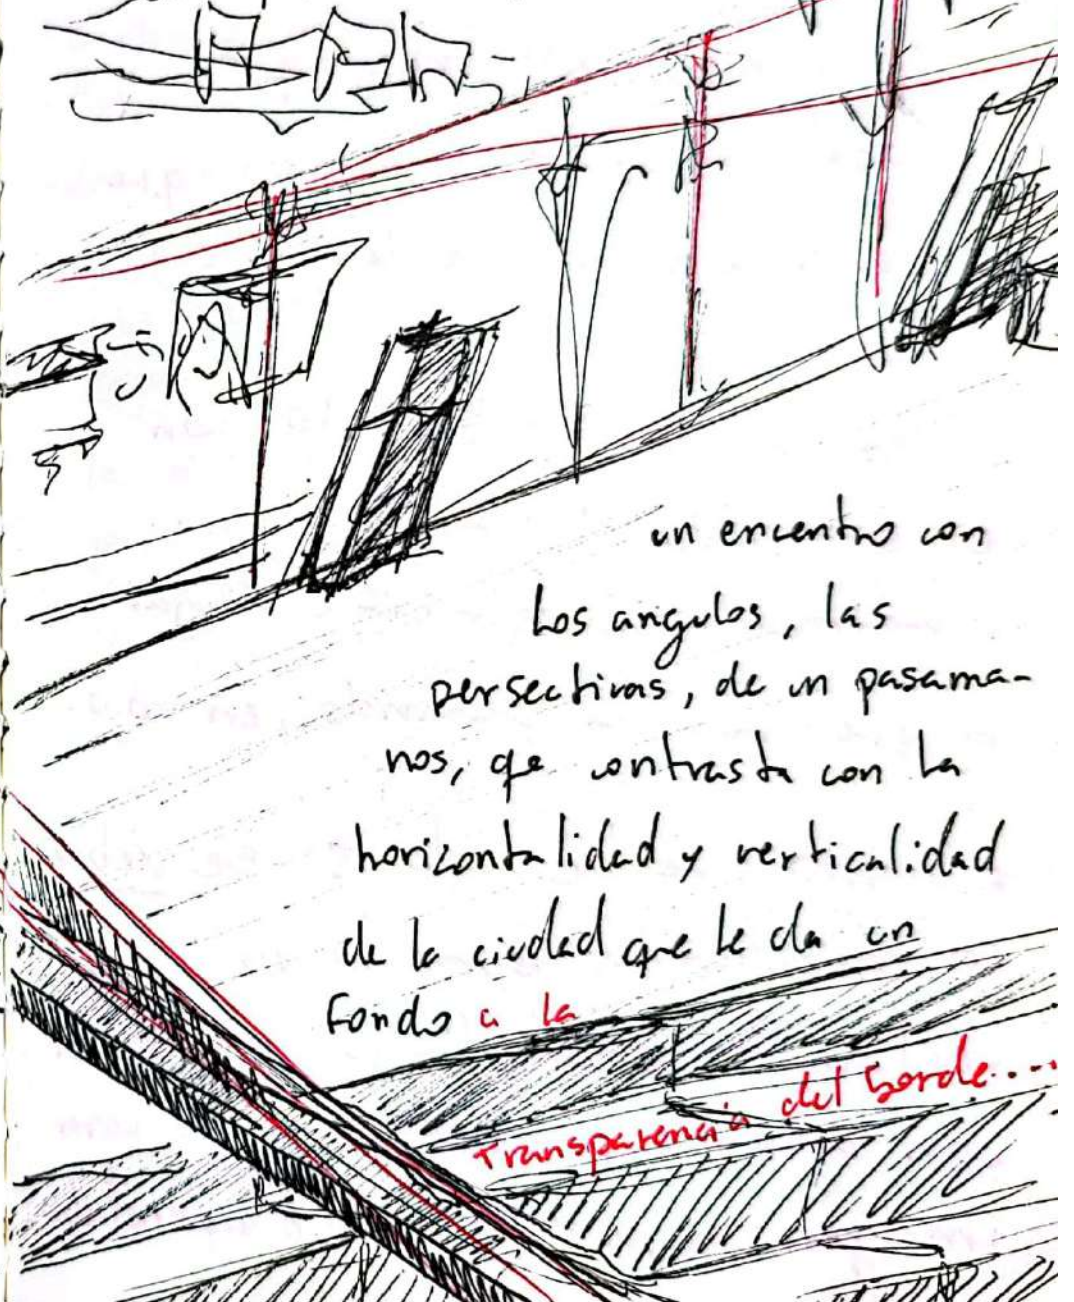 un encuentro con
los angulos, las
persectivas, de un pasama-
nos, qe contrasta con la
horizontalidad y verticalidad
de la ciudad que le da un
Fondo a la
transparencia del borde....